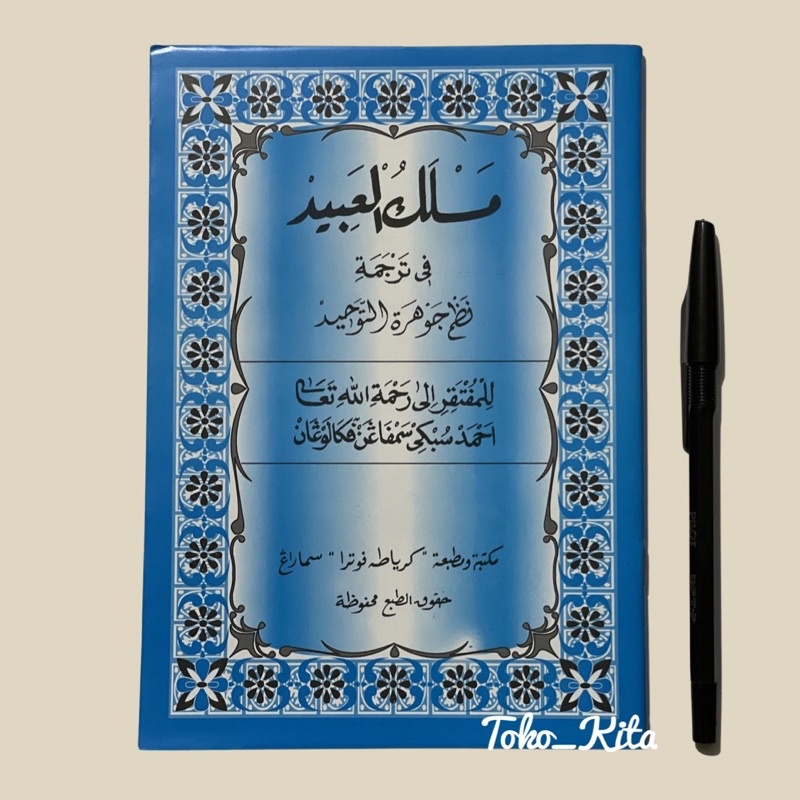 مَسْلَكُ الْعَبِيْدِ
فِى تَرْجَمَةِ
نَظْمِ جَوْهَرَةِ التَّوْحِيْدِ
لِلْمُفْتَقِرِ اِلىٰ رَحْمَةِ اللّٰهِ تَعَالىٰ
اَحْمَدْ سُبْكِىْ سَمْفَاغَنْ فكَالَوْڠَانْ
مكتبة ومطبعة "كرياطه فوترا" سماراڠ
حقوق الطبع محفوظة
Toko_Kita
PILOT